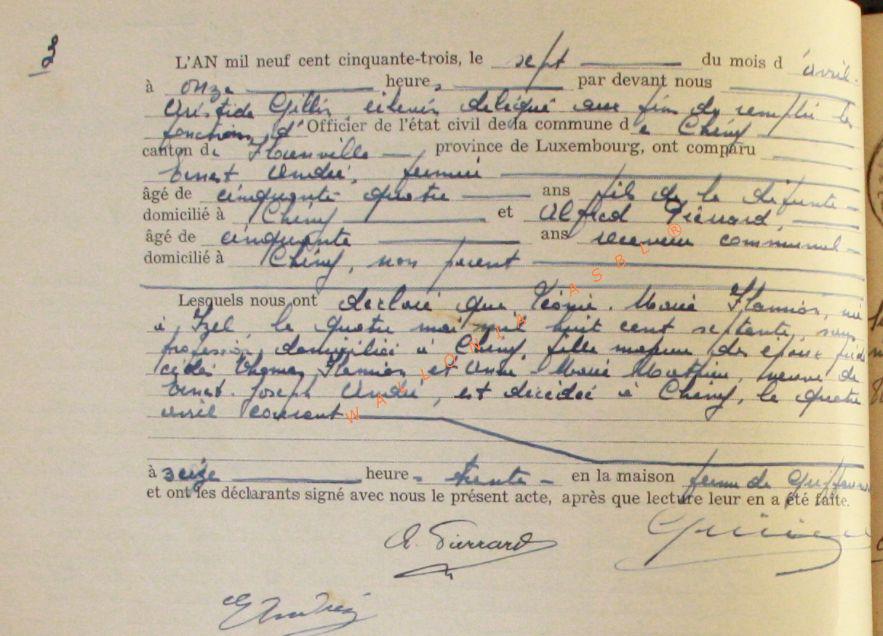 3
L'AN mil neuf cent cinquante-trois, le sept du mois d'avril
à onze heures, par devant nous
Aristide Gillin échevin délégué aux fins de remplir les
fonctions d'Officier de l'état civil de la commune de Chiny
canton de Florenville province de Luxembourg, ont comparu
Ernest André, fermier
âgé de cinquante quatre ans fils de la défunte
domicilié à Chiny et Alfred Pierrard,
âgé de cinquante ans receveur communal
domicilié à Chiny, non parent
Lesquels nous ont déclaré que Marie née
à Izel, le quatre mai mil huit cent septante, sans
profession, domiciliée à Chiny, fille majeure des époux
décédés Thomas et Anne Marie Mathieu, veuve de
Ernest Joseph André, est décédée à Chiny, le quatre
avril courant
à seize heures trente en la maison ferme de
et ont les déclarants signé avec nous le présent acte, après que lecture leur en a été faite.
A. Pierrard
E André
WALLONIA ASBL ®